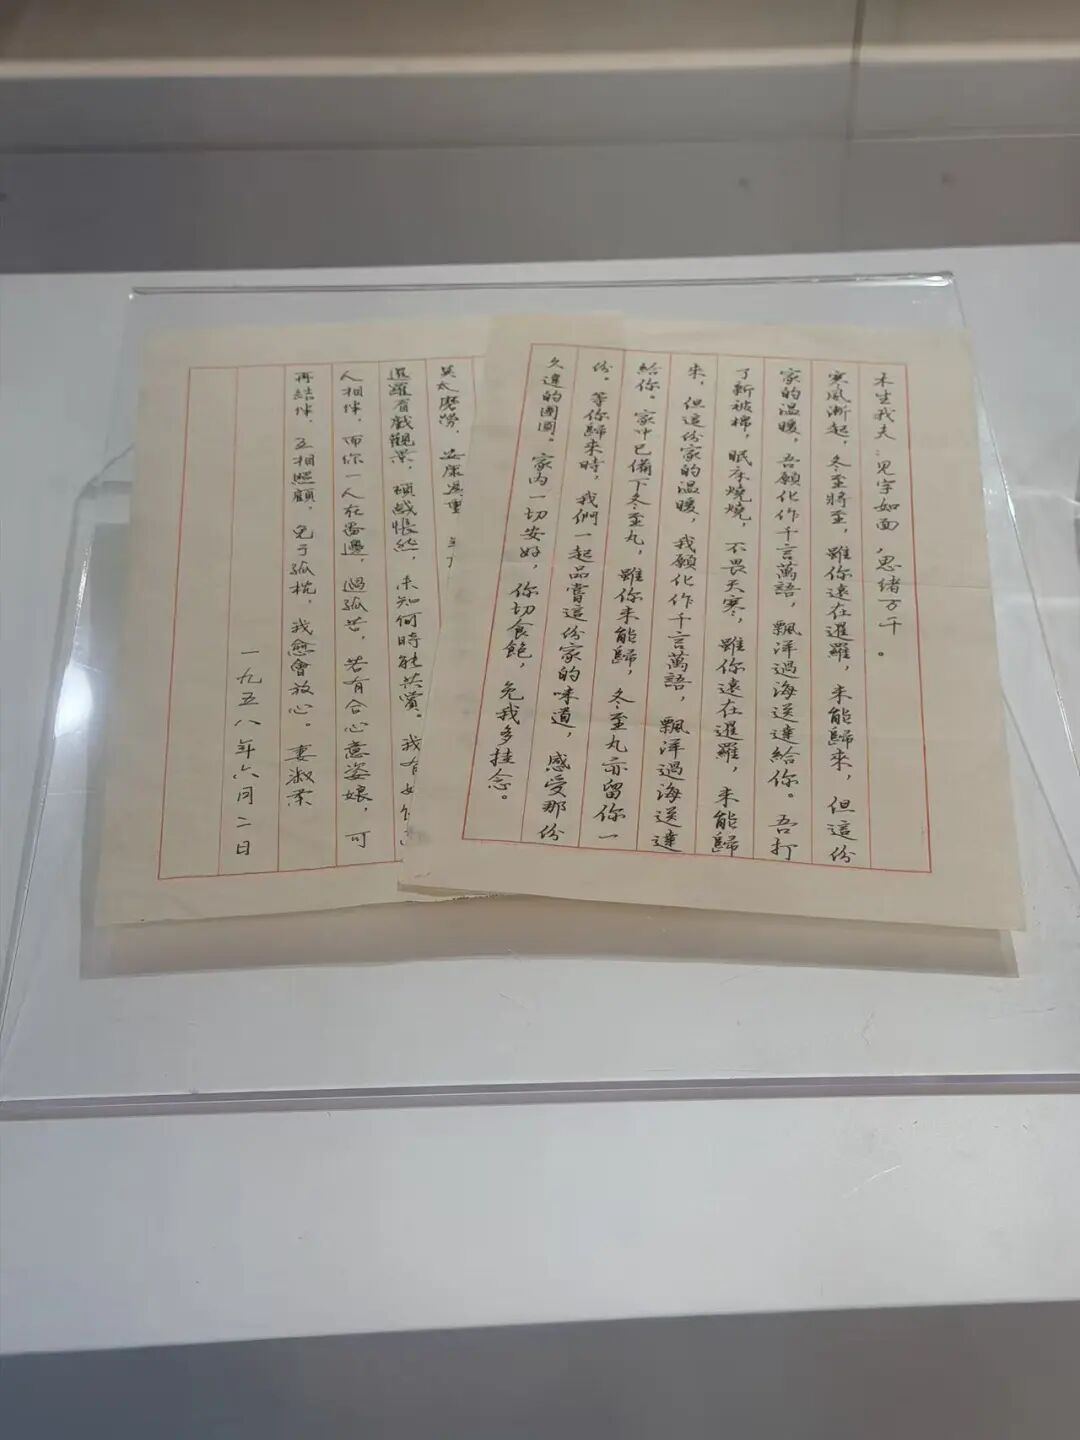 木生我夫：見字如面，思绪万千。
寒風漸起，冬至將至，雖你遠在暹羅，未能歸來，但這份
家的溫暖，吾願化作千言萬語，飄洋過海送達給你。吾打
了新被棉，眠床燒燒，不畏天寒，雖你遠在暹羅，未能歸
來，但這份家的溫暖，我願化作千言萬語，飄洋過海送達
給你。家中已備下冬至丸，雖你未能歸，冬至丸亦留你一
份。等你歸來時，我們一起品嘗這份家的味道，感受那份
久違的團圓。家內一切安好，你切食飽，免我多挂念。
莫太磨勞，安康為重
暹羅有戲觀景，頓感悵然，未知何時能共賞。我有
人相伴，而你一人在番邊，過孤苦，若有合心意姿娘，可
再結伴，互相照顧，免于孤枕，我愈會放心。 妻淑柔
一九五八年六月二日